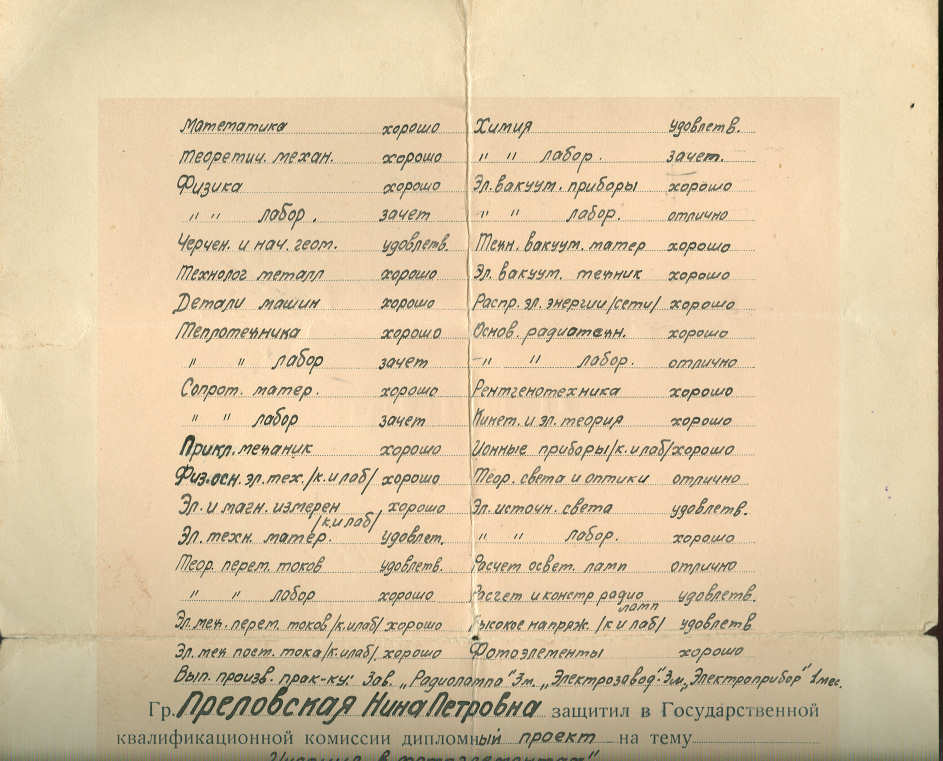 Математика хорошо Химия удовлетв.
Теоретич. механ. хорошо " " лабор. зачет.
Физика хорошо Эл. вакуум. приборы хорошо
" " лабор. зачет " " лабор. отлично
Черчен. и нач. геом. удовлетв. Техн. вакуум. матер хорошо
Технолог металл хорошо Эл. вакуум. техник хорошо
Детали машин хорошо Распр. эл. энергии /сети/ хорошо
Теплотехника хорошо Основ. радиотехн. хорошо
" " лабор зачет " " лабор. отлично
Сопрот. матер. хорошо Рентгенотехника хорошо
" " лабор зачет Кинет. и эл. теория хорошо
Прикл. механик хорошо Ионные приборы /к. и лаб/ хорошо
Физ. осн. эл. тех. /к. и лаб/ хорошо Теор. света и оптики отлично
Эл. и магн. измерен /к и лаб/ хорошо Эл. источн. света удовлетв.
Эл. техн. матер. удовлет. " " лабор. хорошо
Теор. перем. токов удовлетв. Расчет освет. ламп отлично
" " лабор хорошо Расчет и констр радио ламп удовлетв.
Эл. мех. перем. токов /к. и лаб/ хорошо Высокое напряж. /к и лаб/ удовлетв
Эл. мех пост. тока /к. и лаб/. хорошо Фотоэлементы хорошо
Вып. произв. прак-ку: Зав. „Радиолампа" 3 м. „Электрозавод". 3 м. „Электроприбор" 1 мес.
Гр. Преловская Нина Петровна защитил в Государственной
квалификационной комиссии дипломный проект на тему